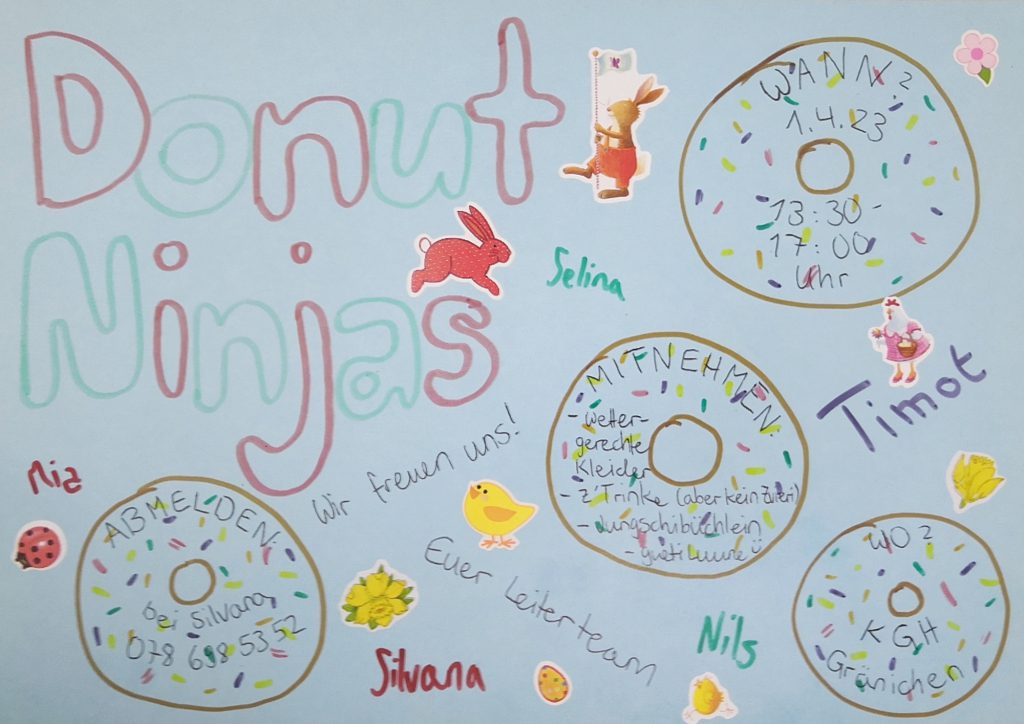 Donut
Ninjas
WANN?
1.4.23
13:30-
17:00
Uhr
Selina
Timot
MITNEHMEN:
- Wetter-
gerechte
Kleider
- z'Trinke (aber kein Zvieri)
- Jungschibüchlein
- gueti Luune
Mia
ABMELDEN:
bei Silvana
078 698 53 52
Wir freuen uns!
Euer Leiterteam
Silvana
Nils
WO?
KGH
Gränichen